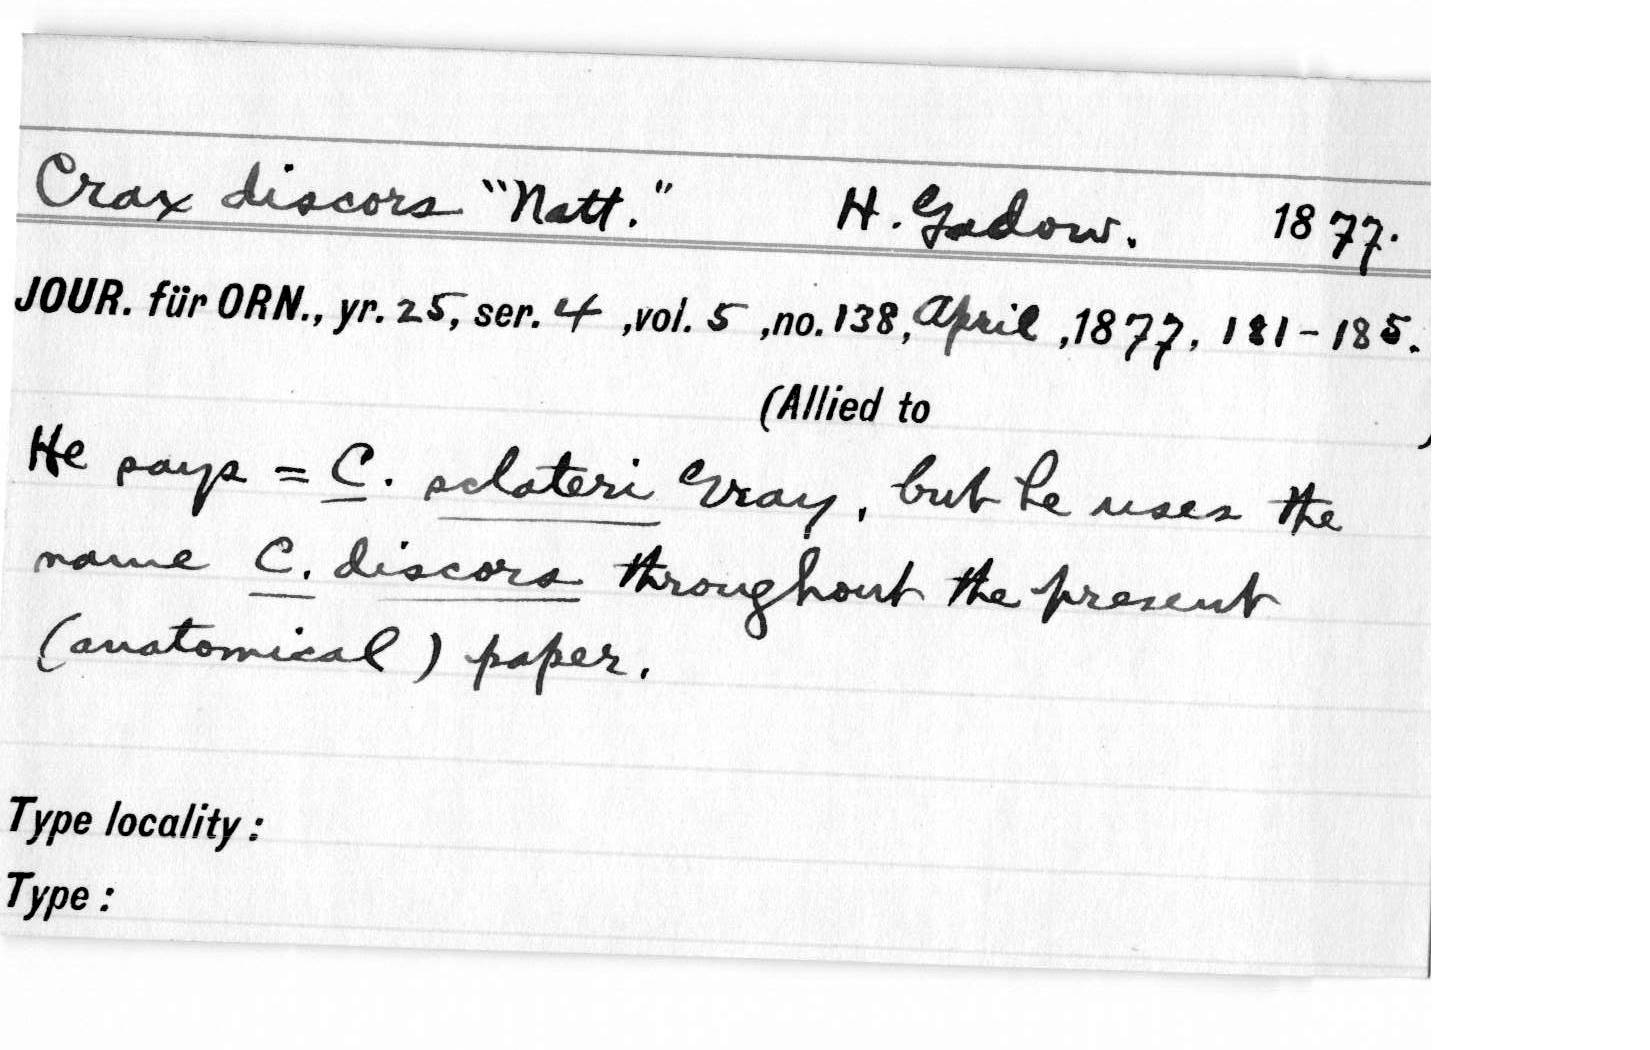 Crax discors "Natt." H. Gadow. 1877.
JOUR. für ORN., yr. 25, ser. 4 ,vol. 5 ,no. 138, April ,1877, 181-185.
(Allied to )
He says = C. sclateri Gray, but he uses the
name C. discors throughout the present
(anatomical) paper.
Type locality :
Type :